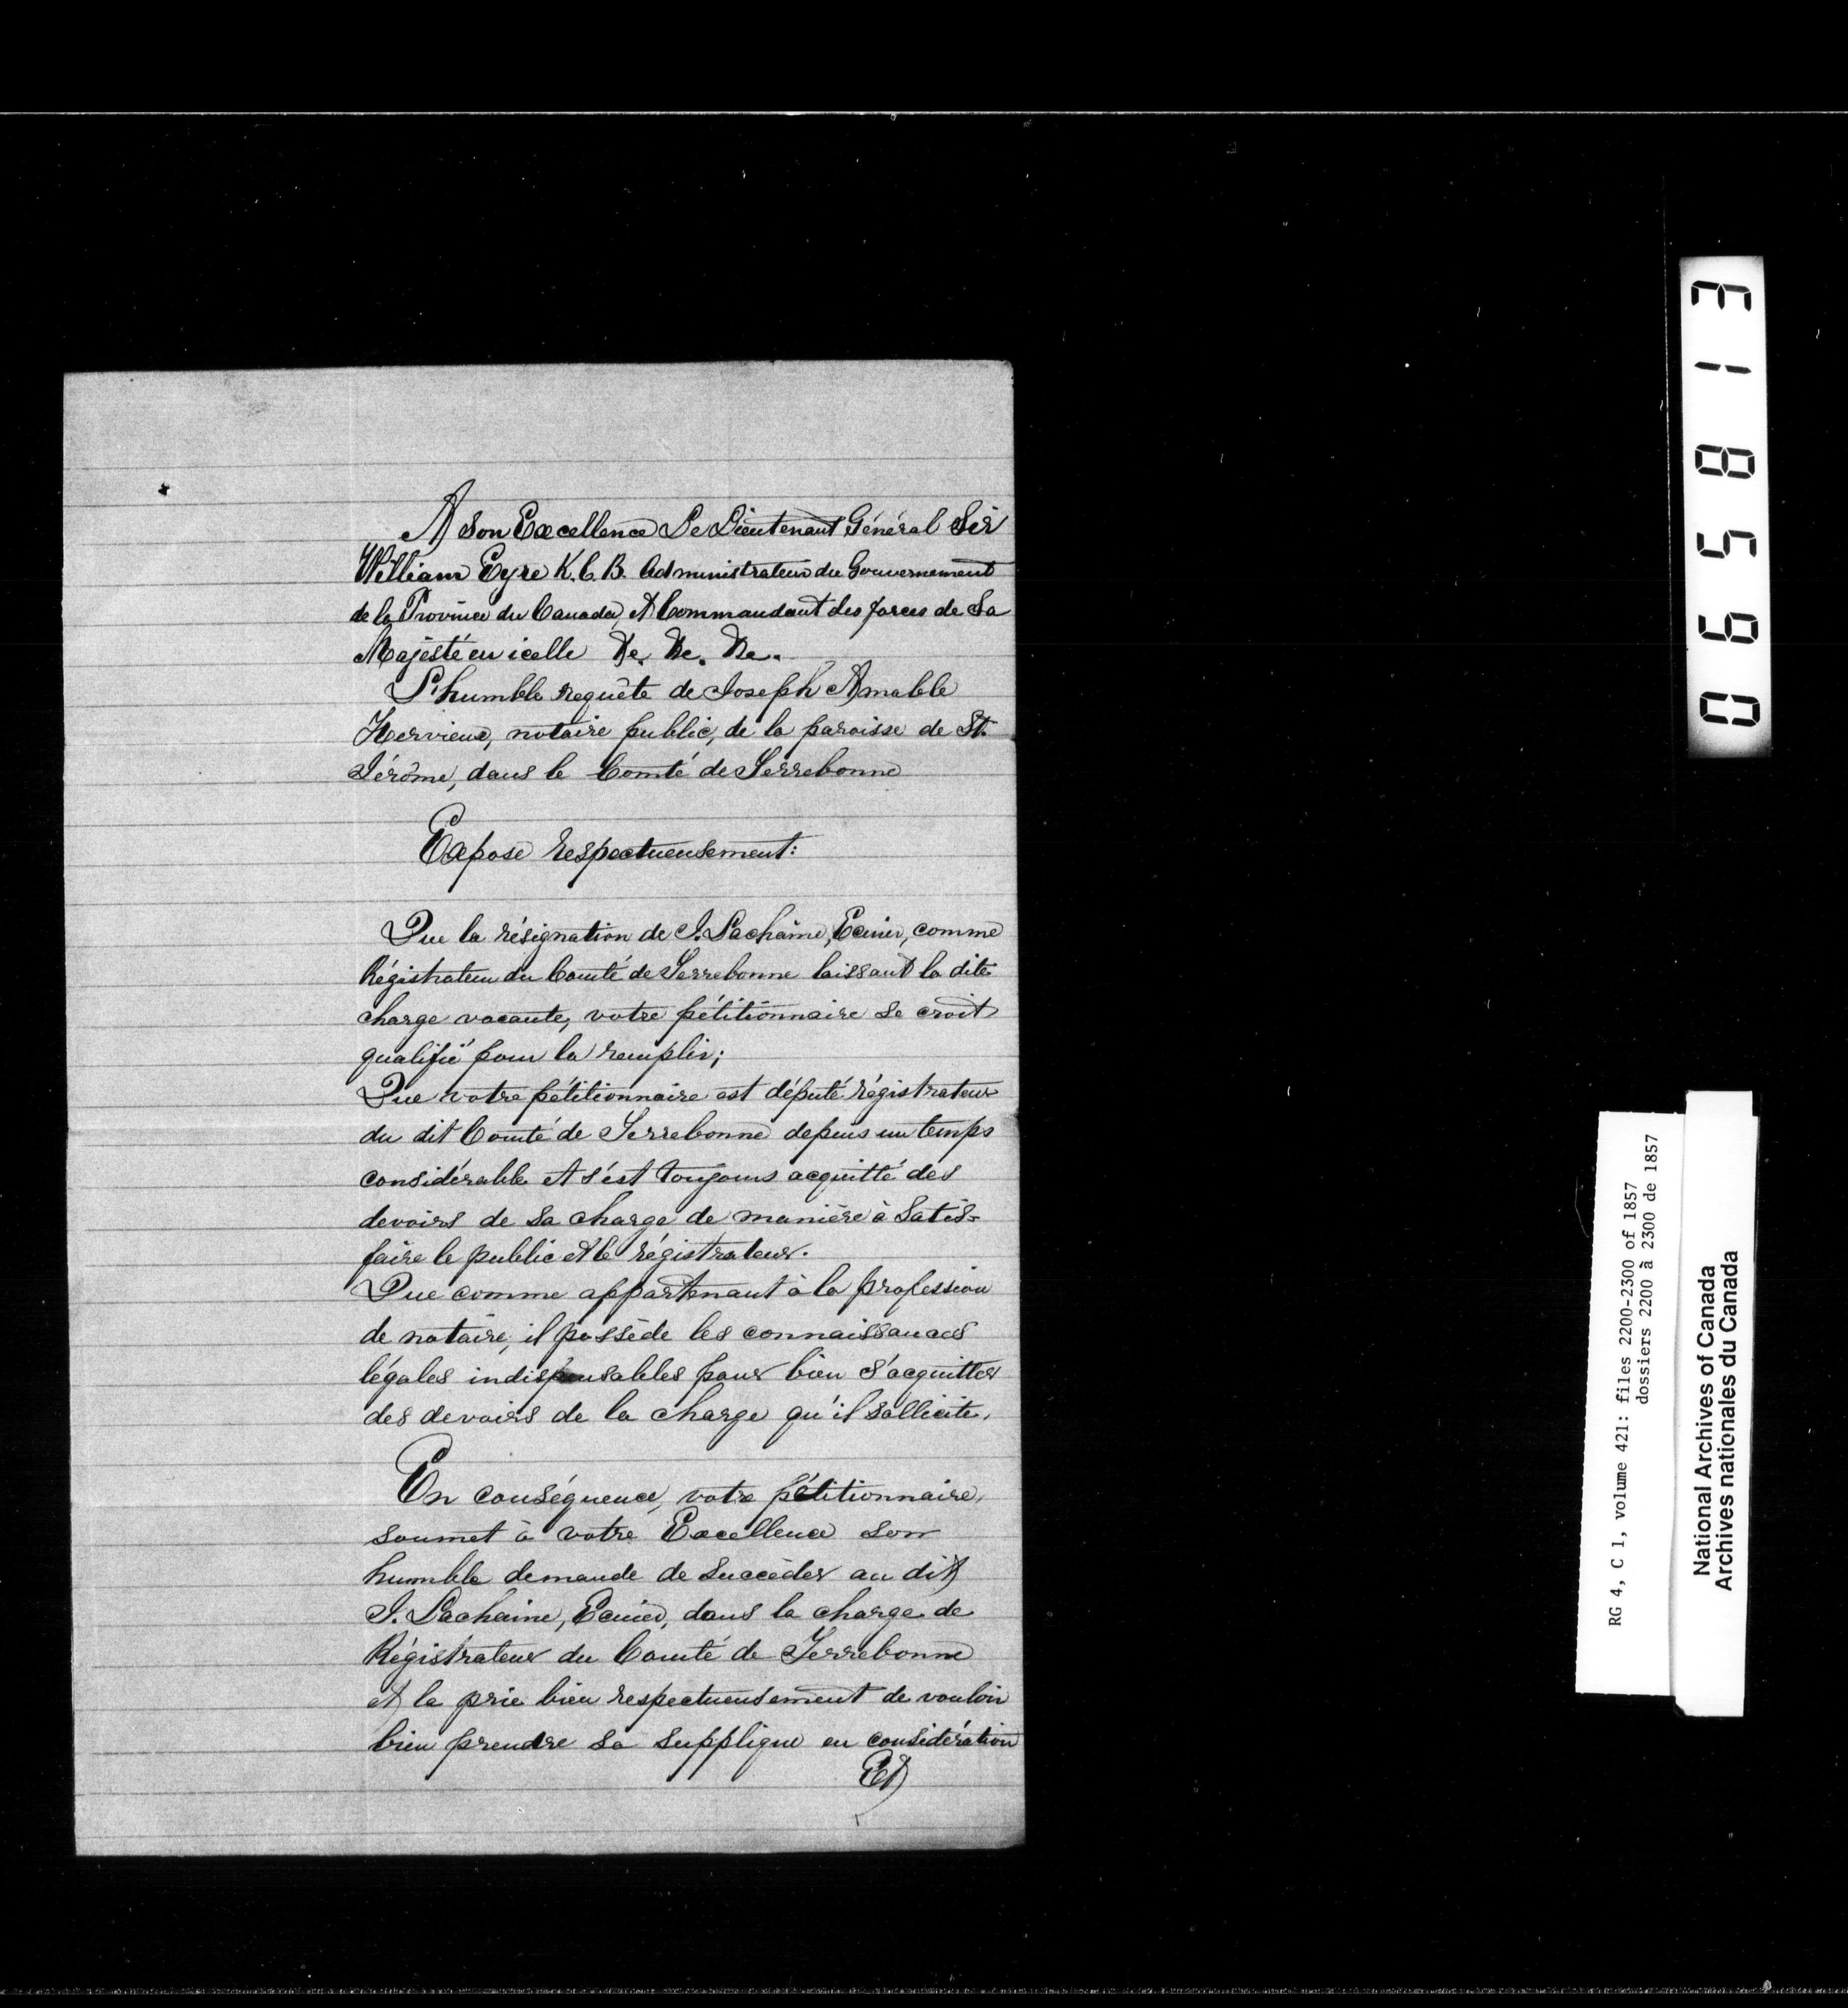 A Son Excellence Le Lieutenant Général Sir
William Eyre K.C.B. Administrateur du Gouvernement
de la Province du Canada, et Commandant des forces de Sa
Majesté en icelle &c. &c. &c.
L'humble requête de Joseph Amable
Hervieux, notaire public, de la paroisse de St.
Jérôme, dans le Comté de Terrebonne
Expose respectueusement:
Que la résignation de J. Lachaine, Ecuier, comme
Régistrateur du Comté de Terrebonne laissant la dite
charge vacante, votre pétitionnaire se croit
qualifié pour la remplir;
Que votre pétitionnaire est député régistrateur
du dit Comté de Terrebonne depuis un temps
considérable et s'est toujours acquitté des
devoirs de sa charge de manière à satis-
faire le public et le régistrateur.
Que comme appartenant à la profession
de notaire, il possède les connaissances
légales indispensables pour bien s'acquitter
des devoirs de la charge qu'il sollicite.
En conséquence, votre pétitionnaire,
soumet à votre Excellence son
humble demande de succèder au dit
J. Lachaine, Ecuier, dans la charge de
Régistrateur du Comté de Terrebonne
et la prie bien respectueusement de vouloir
bien prendre sa supplique en considération
Et
065813
RG 4, C 1, volume 421: files 2200-2300 of 1857
dossiers 2200 à 2300 de 1857
National Archives of Canada
Archives nationales du Canada